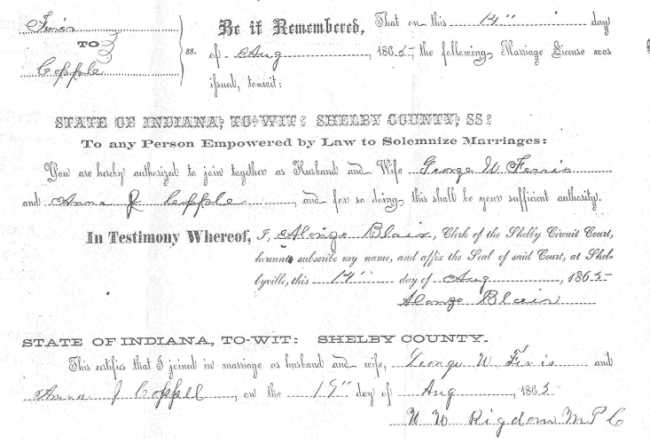 Ferris Be it Remembered, That on this 14" day
TO ss. of Aug, 1865, the following Marriage License was
Copple issued, to-wit:
STATE OF INDIANA, TO-WIT: SHELBY COUNTY, SS:
To any Person Empowered by Law to Solemnize Marriages:
You are hereby authorized to join together as Husband and Wife George W. Ferris
and Anna J Copple, and for so doing, this shall be your sufficient authority.
In Testimony Whereof, I, Alonzo Blair, Clerk of the Shelby Circuit Court,
hereunto subscribe my name, and affix the Seal of said Court, at Shel-
byville, this 14" day of Aug, 1865
Alonzo Blair
STATE OF INDIANA, TO-WIT: SHELBY COUNTY.
This certifies that I joined in marriage as husband and wife, George W Feris and
Anna J Coppell, on the day of Aug, 1865
W W Rigdom M P C